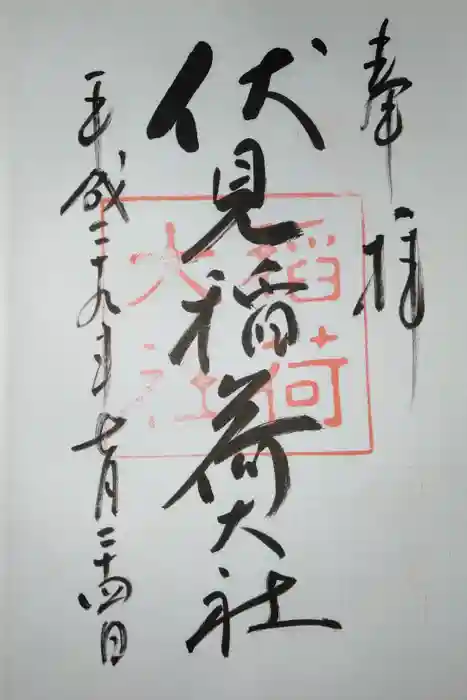 奉拝
伏見稲荷大社
稲荷
大社
平成二十九年七月二十四日